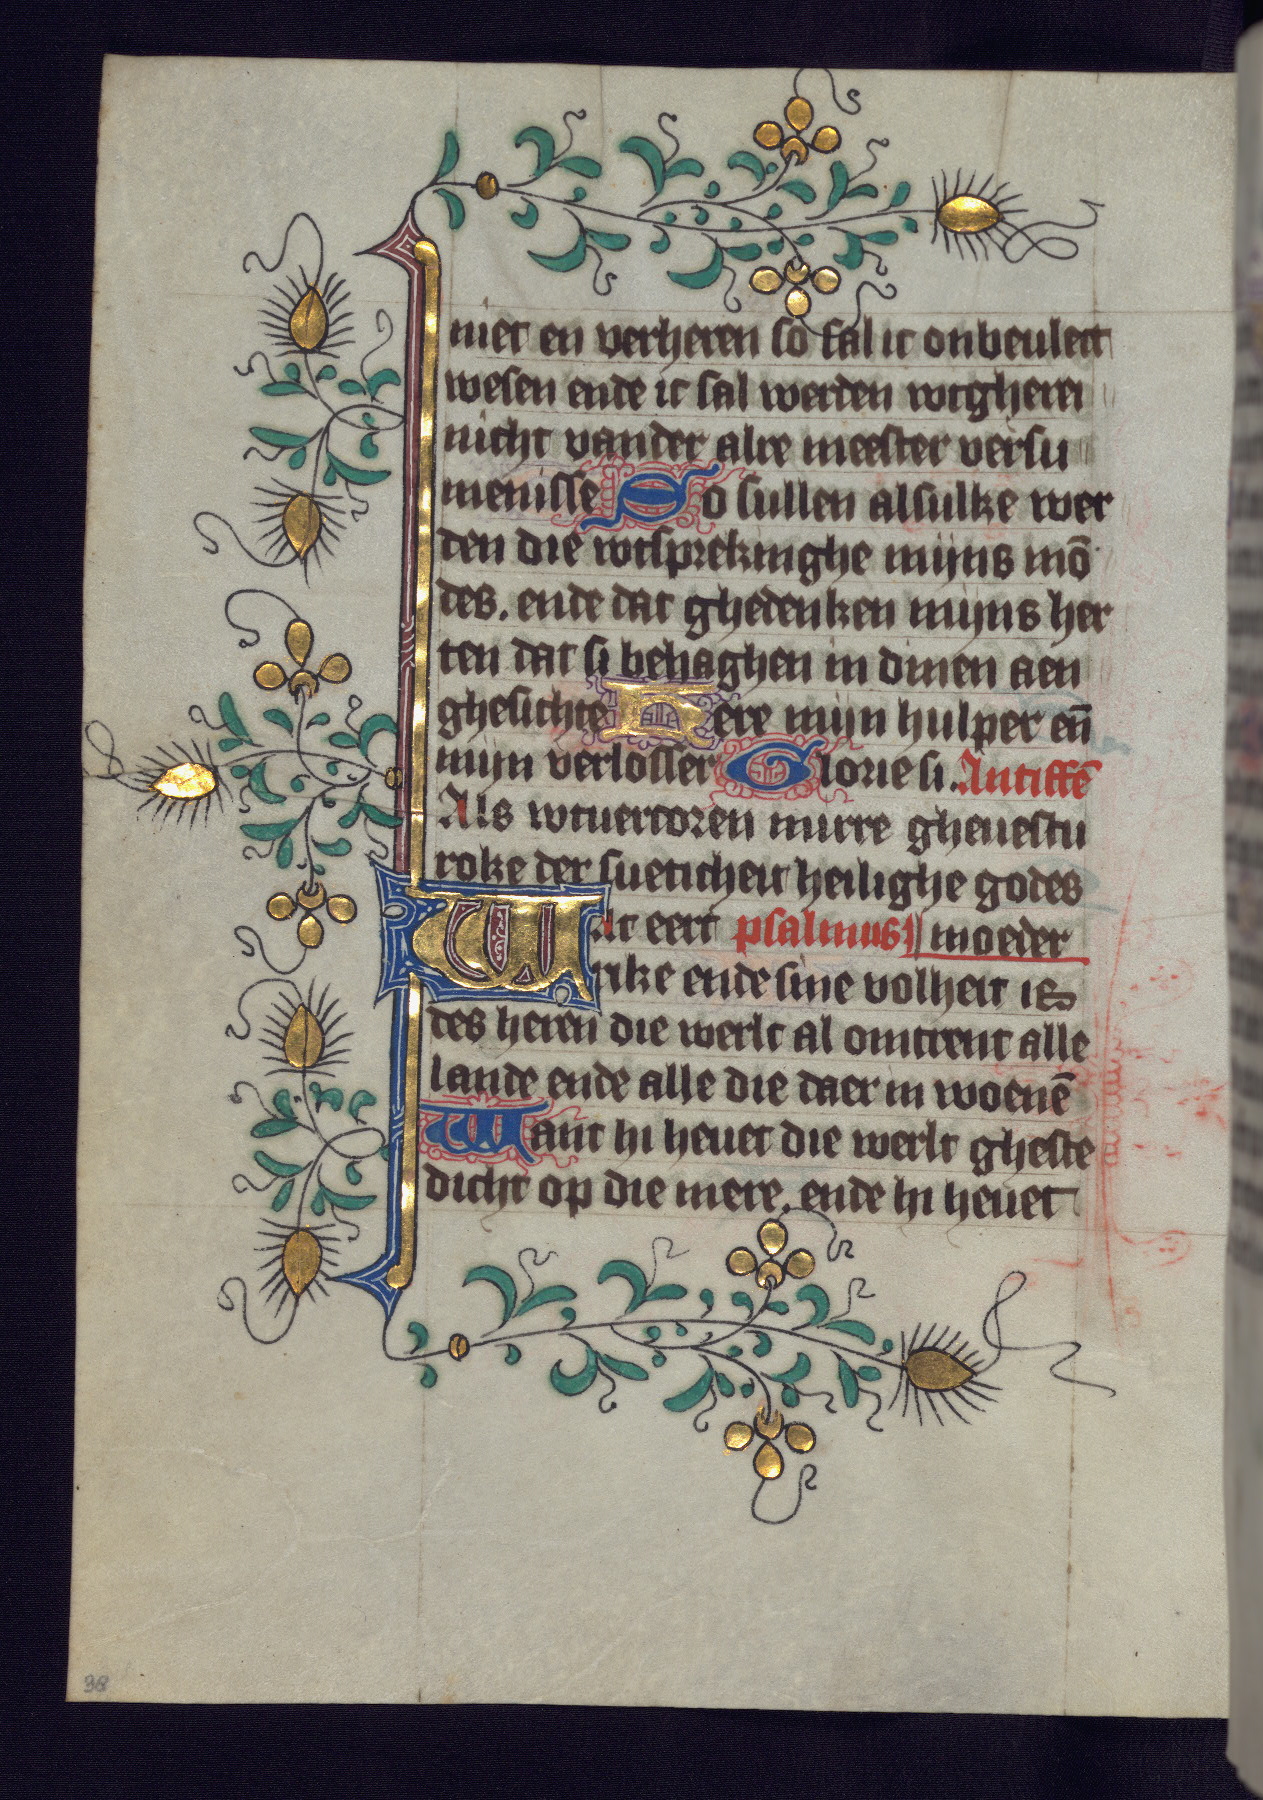 niet en verheren so sal ic onbeulect
wesen ende ic sal werden wtgherei
nicht vander alre meester versu
menisse So sullen alsulke wer
den die wtsprekinghe mijns mō
des. ende dat ghedenken mijns her
ten dat si behaghen in dinen aen
ghesichte Here mijn hulper en̄
mijn verlosser Glorie si. Antiffē
Als wtuercoren mirre gheuestu
roke der sueticheit heilighe godes
At eert psalmus moeder
Wrike ende sine volheit is
des heren die werlt al omtrent alle
lande ende alle die daer in woenē
Want hi heuet die werlt gheste
dicht op die mere. ende hi heuet
98